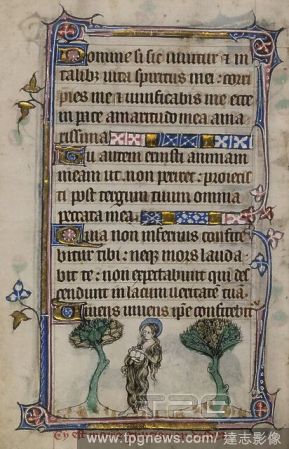 Domine si sic viuitur et in
talib; uita spiritus mei : corri
pies me et uiuificabis me ecce
in pace amaritudo mea ama
rissima
Tu autem eruisti animam
meam ut non periret : proiecis
ti post tergum tuum omnia
peccata mea
Quia non infernus confite
bitur tibi : neq; mors lauda
bit te : non expectabunt qui des
cendunt in lacum ueritatē tuā
Viuens uiuens ipse confitebit
TPG
Cy est
www.tpgnews.com/達志影像